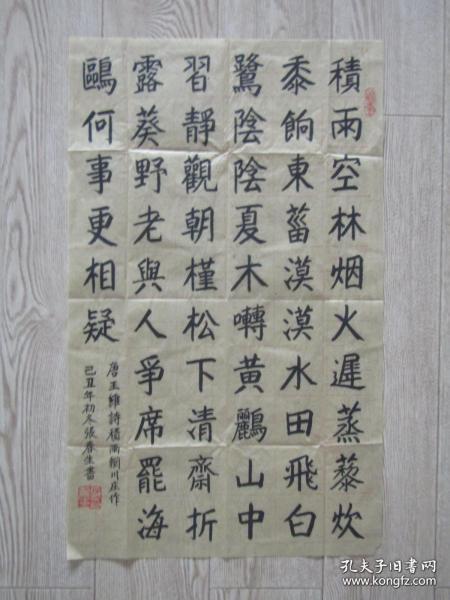 積雨空林烟火遲蒸藜炊
黍餉東菑漠漠水田飛白
鷺陰陰夏木囀黃鸝山中
習靜觀朝槿松下清齋折
露葵野老與人爭席罷海
鷗何事更相疑
唐王維詩積雨輞川庄作
己丑年初冬張春生書
孔夫子旧书网
www.kongfz.com